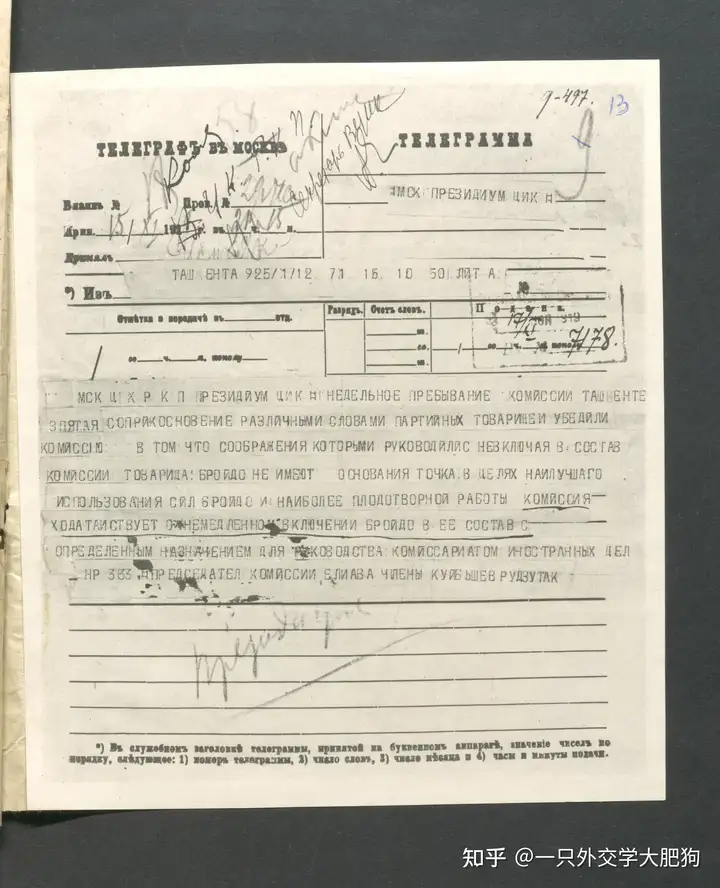 9-497. 13
ТЕЛЕГРАФЪ ВЪ МОСКВѢ
ТЕЛЕГРАММА
9
Секретарь
Бланкъ № Пров. №
МСК ПРЕЗИДИУМ ЦИК
Прин. 15/XI 191 г. въ ч. м.
Принялъ
ТАШКЕНТА 925/1/12 71 15 10 50 ЛИТ А
*) Изъ №
Отмѣтка о передачѣ въ отд.
Разрядъ. Счетъ словъ. Подана.
го ч. м. пополу
7178.
МСК ЦК РКП ПРЕЗИДИУМ ЦИК НЕДЕЛЬНОЕ ПРЕБЫВАНИЕ КОМИССИИ ТАШКЕНТЕ
ЗПЯТАЯ СОПРИКОСНОВЕНИЕ РАЗЛИЧНЫМИ СЛОВАМИ ПАРТИЙНЫХ ТОВАРИЩЕЙ УБЕДИЛИ
КОМИССІЮ В ТОМ ЧТО СООБРАЖЕНИЯ КОТОРЫМИ РУКОВОДИЛИС НЕВКЛЮЧАЯ В СОСТАВ
КОМИССИИ ТОВАРИЩА БРОЙДО НЕ ИМЕЮТ ОСНОВАНИЯ ТОЧКА В ЦЕЛЯХ НАИЛУЧШАГО
ИСПОЛЬЗОВАНИЯ СИЛ БРОЙДО И НАИБОЛЕЕ ПЛОДОТВОРНОЙ РАБОТЫ КОМИССИЯ
ХОДАТАЙСТВУЕТ О НЕМЕДЛЕННОМ ВКЛЮЧЕНИИ БРОЙДО В ЕЕ СОСТАВ С
ОПРЕДЕЛЕННЫМ НАЗНАЧЕНИЕМ ДЛЯ РУКОВОДСТВА КОМИССАРИАТОМ ИНОСТРАННЫХ ДЕЛ
НР 383 ПРЕДСЕДАТЕЛ КОМИССИИ ЕЛИАВА ЧЛЕНЫ КУЙБЫШЕВ РУДЗУТАК
*) Въ служебномъ заголовкѣ телеграммы, принятой на буквенномъ аппаратѣ, значеніе чиселъ по
порядку, слѣдующее: 1) номеръ телеграммы, 2) число словъ, 3) число мѣсяца и 4) часы и минуты подачи.
知乎 @一只外交学大肥狗